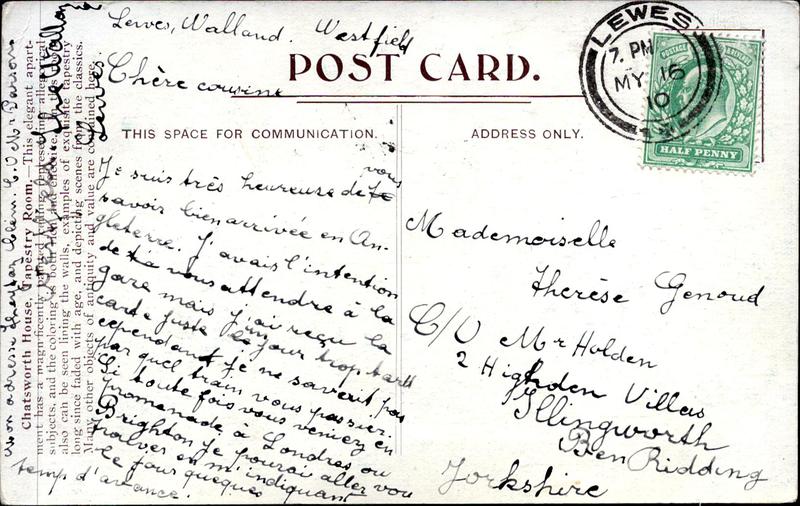 Lewes, Walland. Westfield
POST CARD.
LEWES
7. PM
MY 16
10
POSTAGE
HALF PENNY
Chère cousine
THIS SPACE FOR COMMUNICATION.
ADDRESS ONLY.
vous
Je suis très heureuse de te
savoir bien arrivée en An-
gleterre. J'avais l'intention
de te vous attendre à la
gare mais j'ai reçu la
carte juste le jour trop tard
cependant je ne saverit pas
par quel train vous passier.
Si toute fois vous veniez en
promenade à Londres ou
Brighton je pourai aller vou
trouver en m'indiquant
le jour queques
temp d'avance.
Mademoiselle
Thérèse Genoud
C/O Mr Holden
2 Highden Villas
Illingworth
Ben Ridding
Yorkshire
Chatsworth House, Tapestry Room.—This elegant apart-
ment has a magnificently painted ceiling, representing allegorical
subjects, and the coloring is both rich and
also can be seen lining the walls, examples of exquisite tapestry
long since faded with age, and depicting scenes from the classics.
Many other objects of antiquity and value are contained here.
Mon adresse
C/O Mr Parsons
Lewes